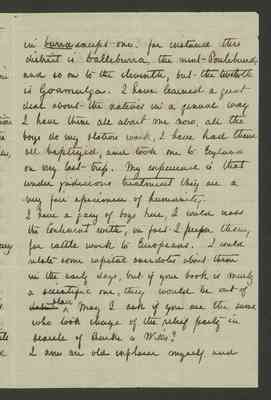 in burra except one. for instance this
district is Walleburra, the next - Pouleburra,
and so on to the eleventh, but the twelfth
is Goamulga. I have learned a great
deal about the natives in a general way
I have them all about me now, all the
boys do my station work, I have had them
all baptized, and took one to England
on my last trip. My experience is that
under judicious treatment they are a
very fair specimen of humanity.
I have a gang of boys here, I could cross
the Continent with, in fact I prefer them,
for cattle work to Europeans. I could
relate some capital anecdotes about them
in the early days, but if your book is merely
a scientific one, they would be out of
place. May I ask if you are the same
who took charge of the relief party in
search of Burke & Wills?
I am an old explorer myself, and